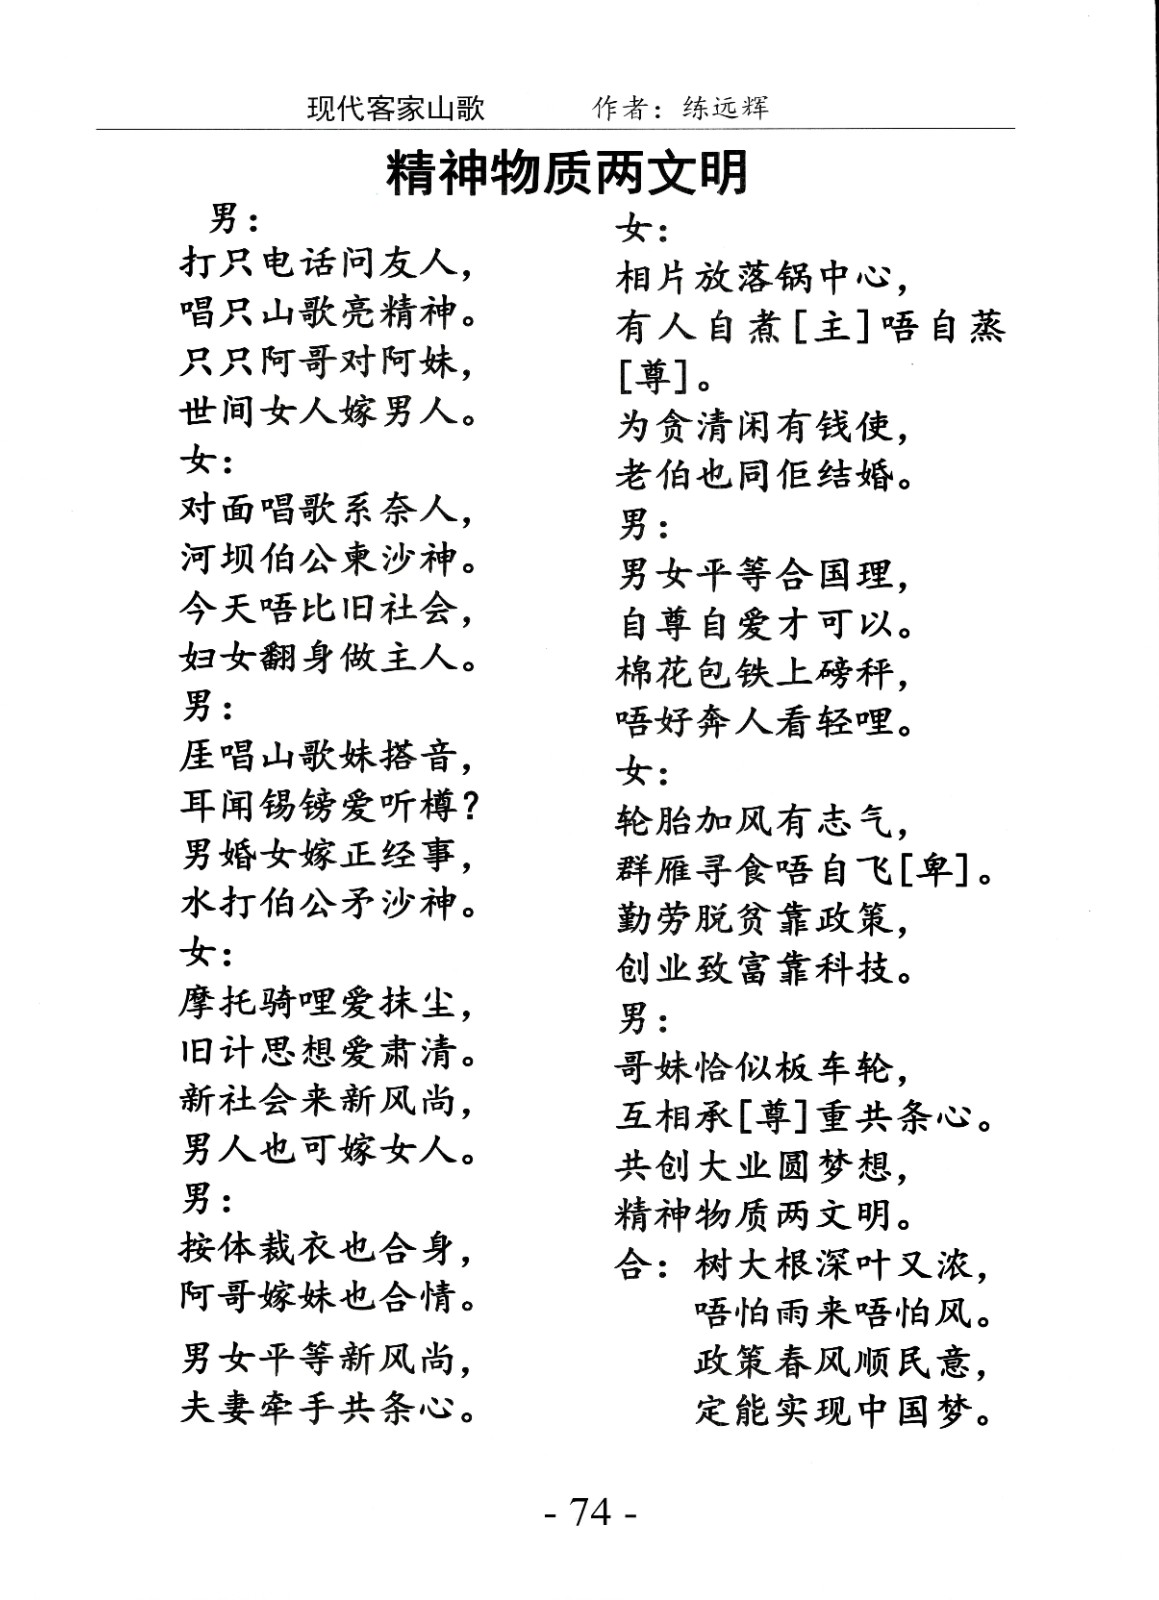 现代客家山歌 作者：练远辉
精神物质两文明
男：
打只电话问友人，
唱只山歌亮精神。
只只阿哥对阿妹，
世间女人嫁男人。
女：
对面唱歌系奈人，
河坝伯公柬沙神。
今天唔比旧社会，
妇女翻身做主人。
男：
厓唱山歌妹搭音，
耳闻锡镑爱听樽？
男婚女嫁正经事，
水打伯公矛沙神。
女：
摩托骑哩爱抹尘，
旧计思想爱肃清。
新社会来新风尚，
男人也可嫁女人。
男：
按体裁衣也合身，
阿哥嫁妹也合情。
男女平等新风尚，
夫妻牵手共条心。
女：
相片放落锅中心，
有人自煮[主]唔自蒸
[尊]。
为贪清闲有钱使，
老伯也同佢结婚。
男：
男女平等合国理，
自尊自爱才可以。
棉花包铁上磅秤，
唔好奔人看轻哩。
女：
轮胎加风有志气，
群雁寻食唔自飞[卑]。
勤劳脱贫靠政策，
创业致富靠科技。
男：
哥妹恰似板车轮，
互相承[尊]重共条心。
共创大业圆梦想，
精神物质两文明。
合：树大根深叶又浓，
唔怕雨来唔怕风。
政策春风顺民意，
定能实现中国梦。
- 74 -